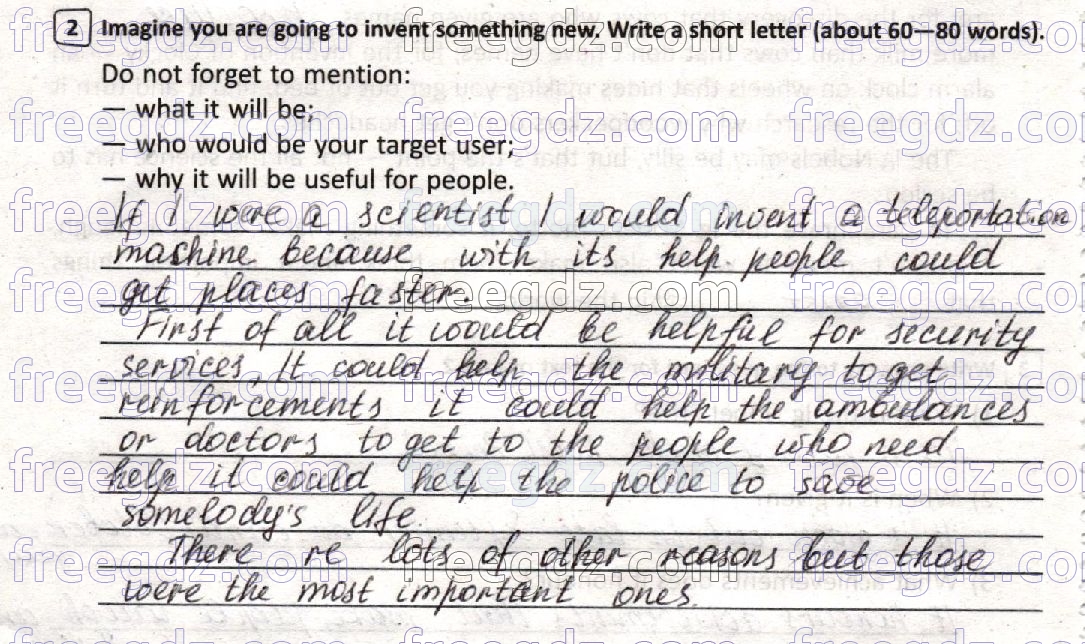 2 Imagine you are going to invent something new. Write a short letter (about 60—80 words).
Do not forget to mention:
— what it will be;
— who would be your target user;
— why it will be useful for people.
If I were a scientist I would invent a teleportation
machine because with its help people could
get places faster.
First of all it would be helpful for security
services. It could help the military to get
reinforcements it could help the ambulances
or doctors to get to the people who need
help it could help the police to save
somebody's life.
There re lots of other reasons but those
were the most important ones.
freegdz.com